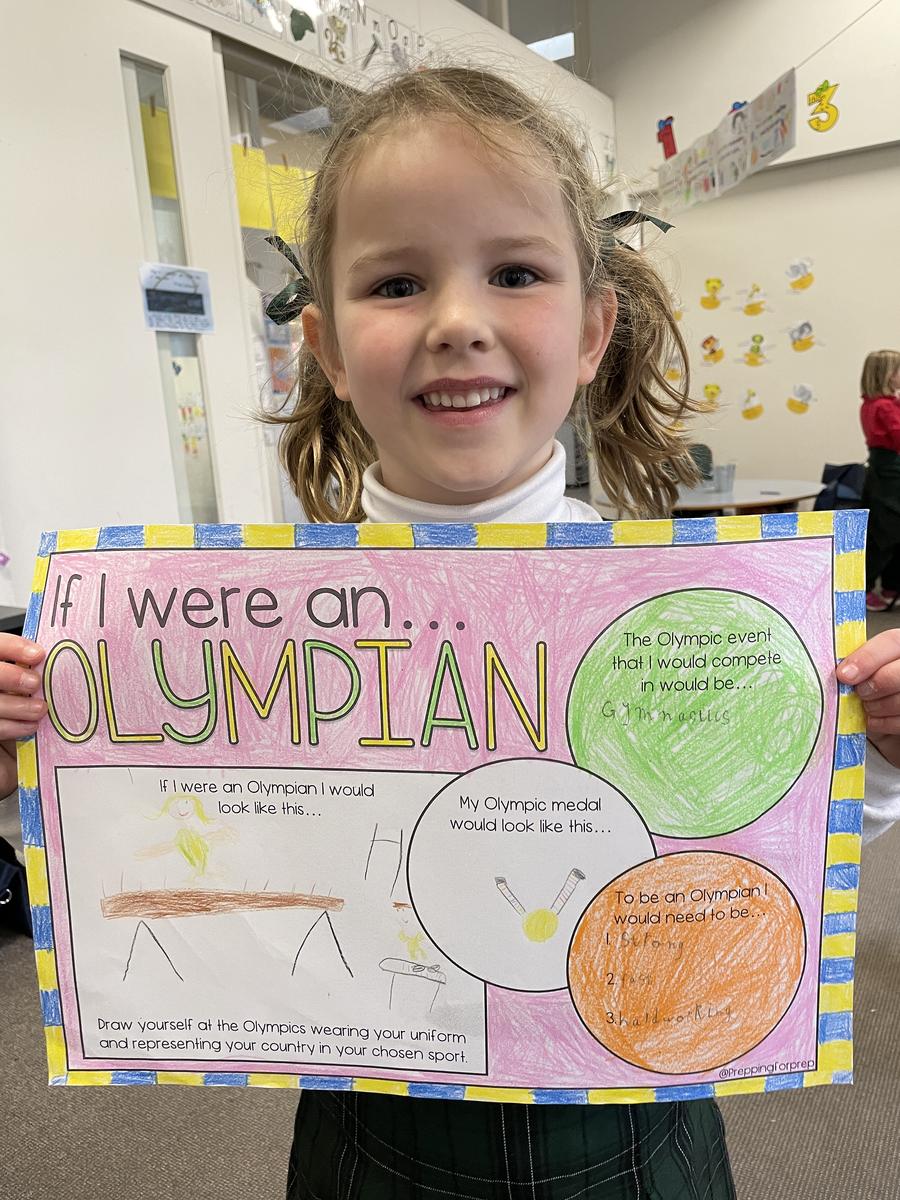 If I were an...
OLYMPIAN
The Olympic event
that I would compete
in would be...
Gymnastics
If I were an Olympian I would
look like this...
My Olympic medal
would look like this...
To be an Olympian I
would need to be...
1. Strong
2. fast
3. haldworking
Draw yourself at the Olympics wearing your uniform
and representing your country in your chosen sport.
@Preppingforprep
N n O o P
1
3